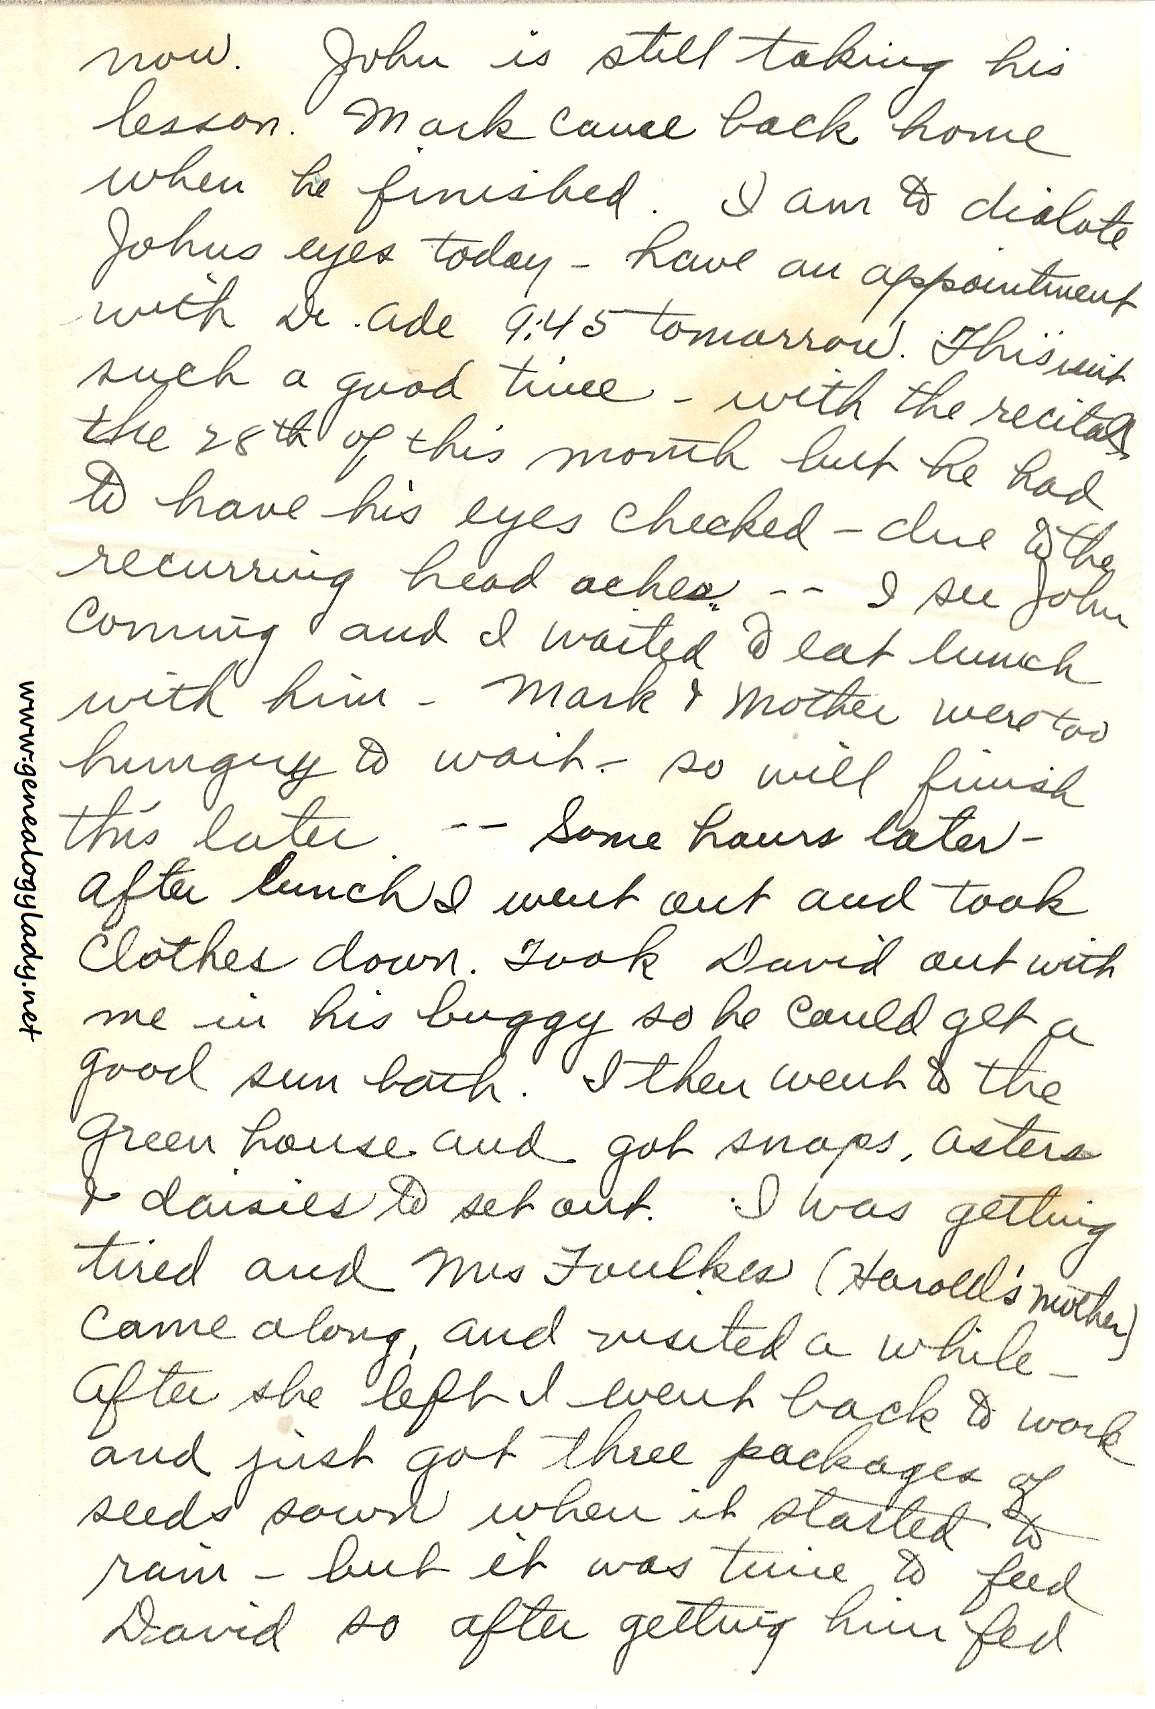 now. John is still taking his
lesson. Mark came back home
when he finished. I am to dialate
Johns eyes today – have an appointment
with Dr. Ade 9:45 tomorrow. This isnt
such a good time – with the recitals
the 28th of this month but he had
to have his eyes checked – due to the
recurring head aches. -- I see John
coming and I waited to eat lunch
with him – Mark & Mother were too
hungry to wait – so will finish
this later. -- Some hours later –
After lunch I went out and took
clothes down. Took David out with
me in his buggy so he could get a
good sun bath. I then went to the
green house and got snaps, asters
& daisies to set out. I was getting
tired and Mrs Foulkes (Harold's mother)
came along, and visited a while –
After she left I went back to work
and just got three packages of
seeds sown when it started to
rain – but it was time to feed
David so after getting him fed
www.genealogylady.net